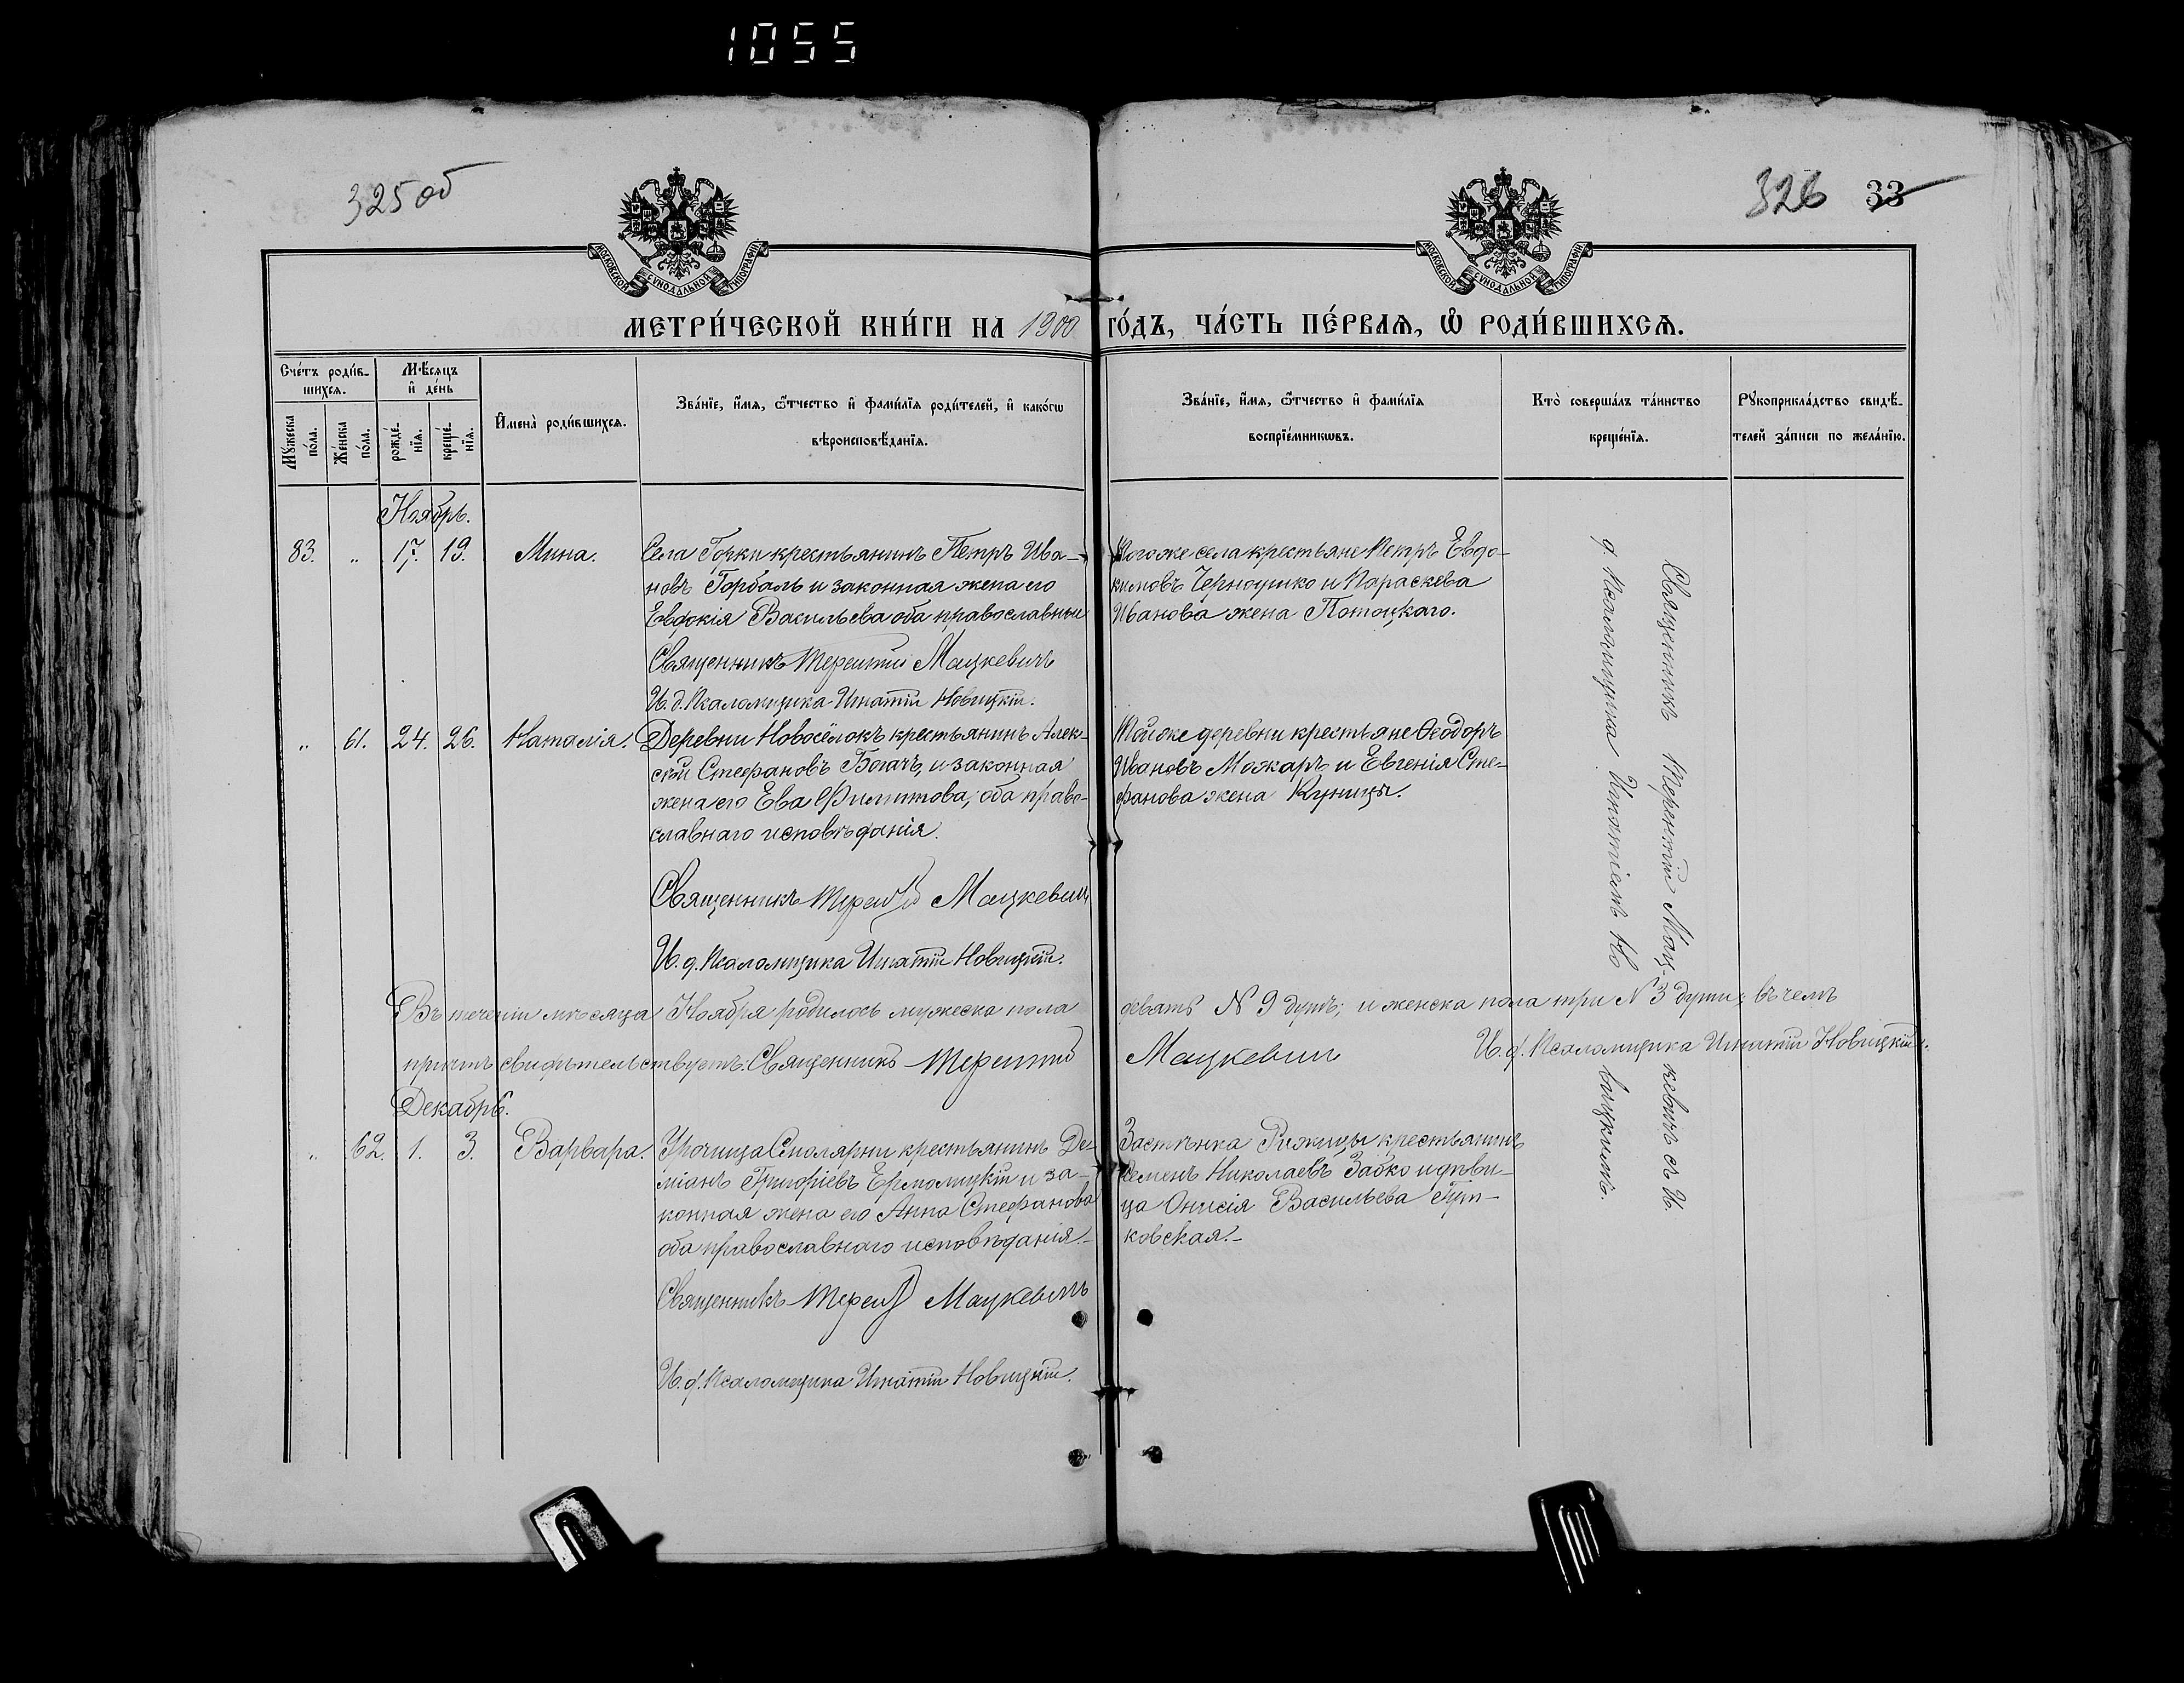 1055
325 об
326 33
МОСКОВСКОЙ СѴНОДАЛЬНОЙ ТИПОГРАФІИ
МОСКОВСКОЙ СѴНОДАЛЬНОЙ ТИПОГРАФІИ
МЕТРИ́ЧЕСКОЙ КНИ́ГИ НА 1900 ГО́ДЪ, ЧА́СТЬ ПЕ́РВАѦ, Ѽ РОДИ́ВШИХСѦ.
Сче́тъ роди́в-
шихсѧ.
Мѣ́сѧцъ
и҆ де́нь
Мꙋ́жеска
по́ла.
Же́нска
по́ла.
рожде́-
нїѧ.
креще́-
нїѧ.
И҆мена̀ роди́вшихсѧ.
Зва́нїе, и҆́мѧ, ѻ҆́тчество и҆ фами́лїѧ роди́телей, и҆ како́гѡ
вѣроисповѣ́данїѧ.
Зва́нїе, и҆́мѧ, ѻ҆́тчество и҆ фами́лїѧ
воспрїе́мникѡвъ.
Кто̀ соверша́лъ та́инство
креще́нїѧ.
Рꙋкоприкла́дство свидѣ́-
телей за́писи по жела́нїю.
Ноябрь.
83. „ 17. 19. Мина.
Села Горки крестьянинъ Петръ Ива-
новъ Горбаль и законная жена его
Евдокія Васильева оба православныи
Священникъ Терентій Мацкевичъ
И. д. Псаломщика Игнатій Новицкій.
Тогоже села крестьяне Петръ Евдо-
кимовъ Черноушко и Параскева
Иванова жена Потоцкаго.
„ 61. 24. 26. Наталія.
Деревни Новосёлокъ крестьянинъ Алек-
сѣй Стефановъ Богачъ, и законная
жена его Ева Филиппова, оба право-
славнаго исповѣданія.
Священникъ Терентій Мацкевичъ
И. д. Псаломщика Игнатій Новицкій.
Тойже деревни крестьяне Ѳеодоръ
Ивановъ Можаръ и Евгенія Сте-
фанова жена Куницы.
Въ теченіи мѣсяца Ноября родилось мужеска пола девять N 9 душъ; и женска пола три N 3 души; въ чемъ
причтъ свидѣтельствуетъ: Священникъ Терентій Мацкевичъ И. д. Псаломщика Игнатій Новицкій.
Декабрь.
„ 62. 1. 3. Варвара.
Урочища Столярни крестьянинъ Де-
міанъ Григоріевъ Ермолицкій и за-
конная жена его Анна Стефанова
оба православнаго исповѣданія.
Священникъ Терентій Мацкевичъ
И. д. Псаломщика Игнатій Новицкій.
Застѣнка Рижицы крестьянинъ
Семенъ Николаевъ Забко и дѣви-
ца Онисія Васильева Гут-
ковская.
Священникъ Терентій Мацкевичъ съ И.
д. Псаломщика Игнатіемъ Новицкимъ.